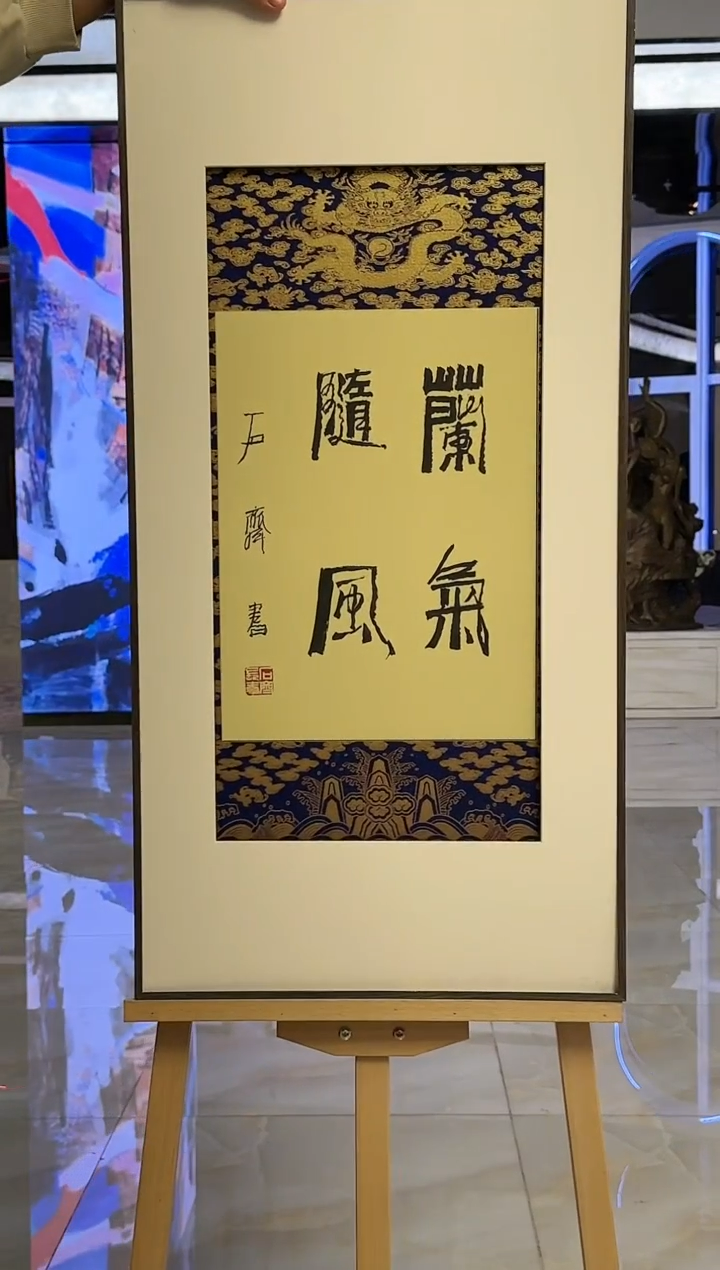 蘭氣
隨風
石齊書